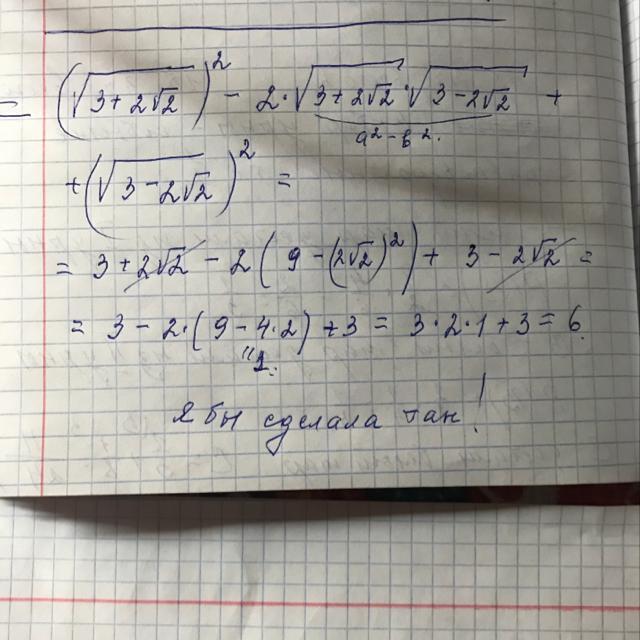 = (√(3+2√2))² - 2·√(3+2√2)·√(3-2√2) +
a²-b².
+ (√(3-2√2))² =
= 3+2√2 - 2(9-(2√2)²) + 3-2√2 =
= 3 - 2·(9-4·2) + 3 = 3·2·1+3 = 6.
"1.
Я бы сделала так!